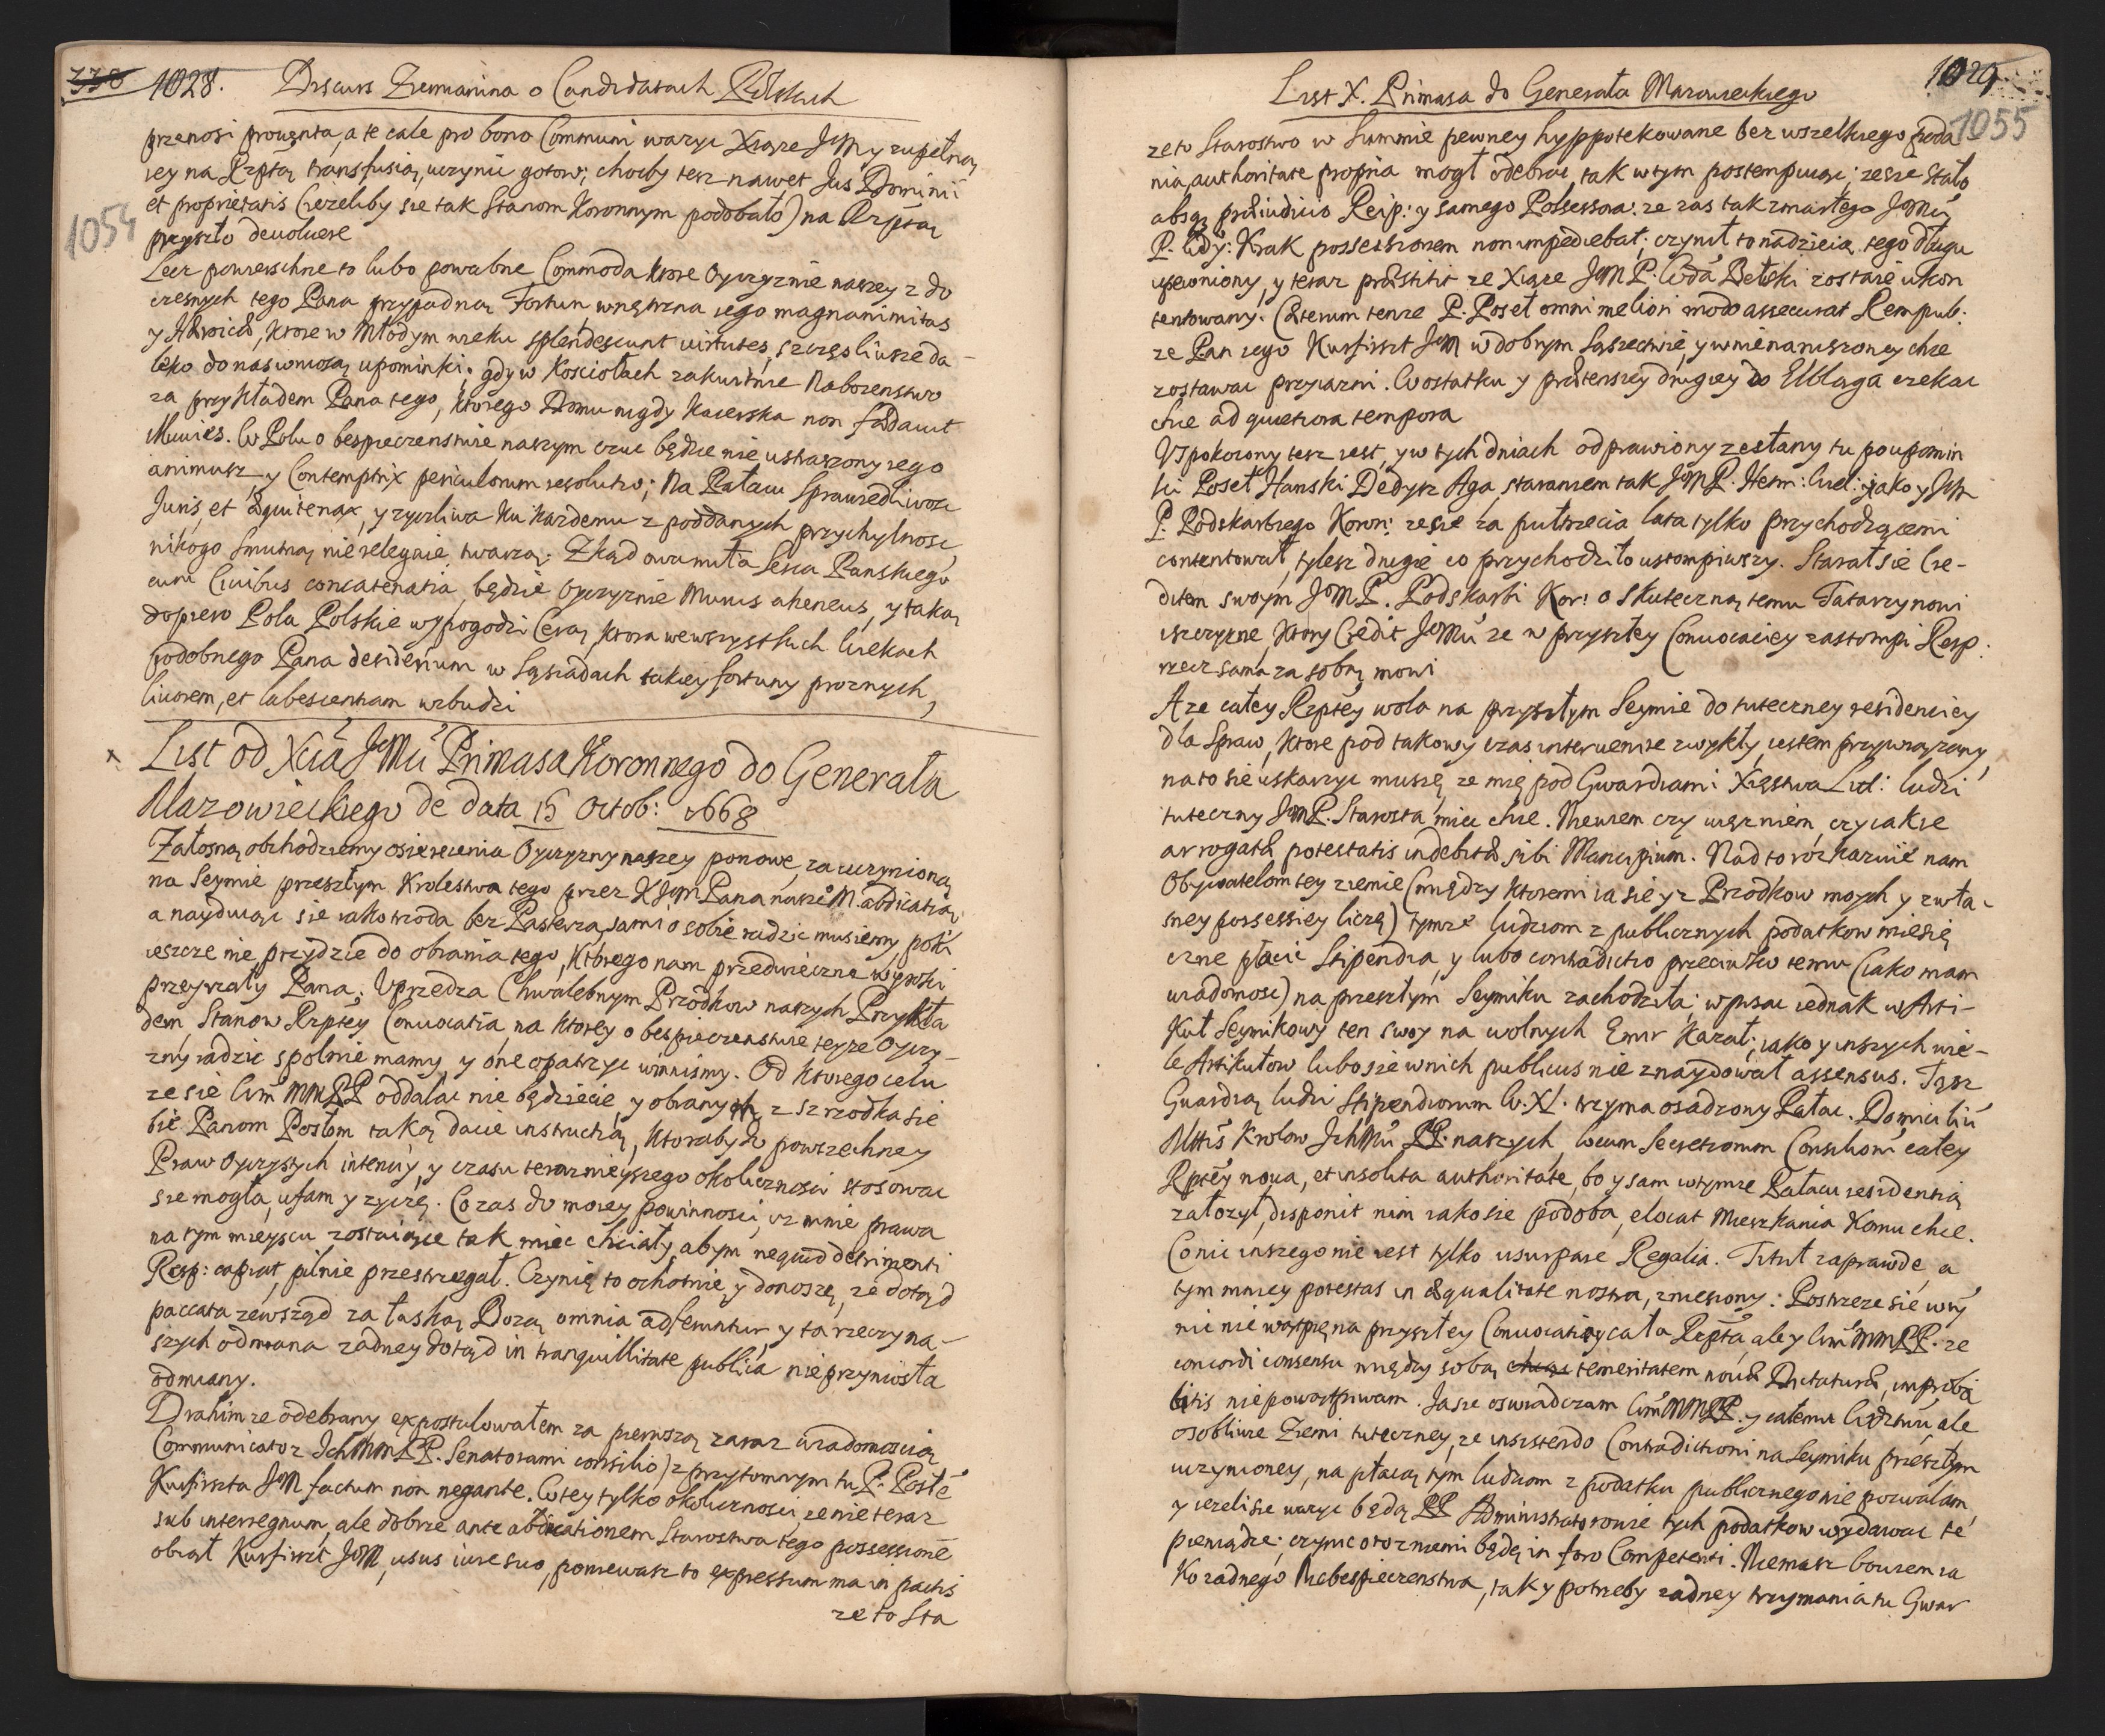 338 1028. Discurs Ziemianina o Candidatach Polskich
1054
przenosi prowenta, a te cale pro bono Communi waryc Xiąże JeM y zupełną
iey na Rzptą transfusią, uczynić gotow; choćby tesz nawet Jus Dominii
et proprietatis (ieżeliby sie tak Stanom Koronnym podobało) na Rzptą
przyszło devoluere
Lecz powierzchne to lubo powabne Commoda ktore Oyczyznie naszey z do
czesnych tego Pana przypadną Fortun wnętrzna iego magnanimitas
y Heroicæ, ktore w Młodym wieku splendescunt virtutes, szczęsliwsze da-
leko do nas wniosą upominki; gdy w Kosciołach zakwitnie Nabozenstwo
za przykładem Pana tego, ktorego Domu nigdy Kacerska non fædavit
Illuvies. W Polu o bespieczenstwie naszym czuć będzie nie ustraszony iego
animusz, y Contemptrix periculorum resolutio; Na Pałacu Sprawiedliwość
Juris et Æqui tenax, y zyczliwa ku każdemu z poddanych przychylnosc,
nikogo smutną nie relegaie twarzą; Zkąd owa miła serca Panskiego
cum Civibus concatenatia, będzie Oyczyznie Murus aheneus, y taką
dopiero Pola Polskie wypogodzi Cerą, ktora we wszystkich Wiekach
podobnego Pana desiderium w Sąsiadach takiey fortuny proznych,
livorem, et labescentiam wzbudzi
List od Xcia JeMci Primasa Koronnego do Generała
Mazowieckiego de data 15 Octob: 1668
Załosną obchodziemy osierocenia Oyczyzny naszey ponowę, za uczynioną
na Seymie przeszłym Krolestwa tego przez K JeM Pana nasze M. abdicatią
a nayduiąc sie iako trzoda bez Pasterza, sami o sobie radzić musiemy poki
ieszcze nie przydzie do obrania tego, Ktorego nam przedwieczne wyroki
przeyrzały Pana; Uprzedza Chwalebnym Przodkow naszych Przykła
dem, Stanow Rzptey Convocatia, na ktorey o bespieczenstwie teyze Oyczy-
zny radzic spolnie mamy, y one opatrzyc winnismy. Od ktorego celu
ze sie Wm MMPP oddalac nie będziecie, y obranym z szrzodka sie
bie Panom Posłom taką dacie instructią, ktoraby do powszechney
Praw Oyczystych intenciy, y czasu teraznieyszego okolicznosci stosowac
sie mogła, ufam y zyczę. Co zas do moiey powinnosci, iz mnie prawa
na tym mieyscu zostaiące tak miec chciały, abym nequid detrimenti
Resp: capiat, pilnie przestrzegał. Czynię to ochotnie, y donoszę, ze dotąd
paccata zewsząd za łaską Bozą omnia adferuntur, y ta rzeczy na-
szych odmiana zadney dotąd in tranquillitate publica nie przyniosła
odmiany.
Drahim ze odebrany expostulowałem za pierwszą zaraz wiadomością
Communicato z Ich MMPP. Senatorami consilio, z przytomnym tu P. Posłe
Kurfirszta JeM factum non negante. W tey tylko okolicznosci ze nie teraz
sub interregnum, ale dobrze ante abdicationem Starostwa tego possessionē
obiął Kurfirszt JeM, usus iure suo, poniewasz to expressum ma in pactis
ze to Sta
List X. Primasa do Generała Mazowieckiego 1029
1055
ze to Starostwo w Summie pewney hyppotekowane bez wszelkiego poda
nia, authoritate propria mogł odebrac, tak w tym postempuiąc; ze sie stało
absq; præiudicio Reip: y samego Possessora: ze zas tak zmarłego JeMci
P. Wdy: Krak possessionem non impediebat; czynił to nadzieią tego długu
upewniony, y teraz præstitit ze Xiąże JeM P. Wda Bełski zostanie ukon
tentowany. Cæterum tenze P. Poseł omni meliori modo assecurat Rempub:
ze Pan iego Kurfirszt JeM w dobrym Sąsiectwie y w nienaruszoney chce
zostawac przyiazni. W ostatku y prætensiey drugiey do Elbląga czekac
chce ad quietiora tempora
Uspokoiony tesz iest, y w tych dniach odprawiony zesłany tu po upomin
ki Poseł Hanski Dedysz Aga, staraniem tak JeM P. Hetm: Wiel: jako y JeM
P. Podskarbiego Koron: ze sie za pułtrzecia lata tylko przychodzącemi
contentował, tylesz drugie co przychodziło ustompiwszy. Starał sie Cre-
ditem swoym JeM P. Podskarbi Kor: o skuteczną temu Tatarzynowi
iszczyznę, ktory Credit JeMci ze w przyszłey Convocaciey zastompi Resp:
rzecz sama za sobą mowi
A ze całey Rzptey wola na przyszłym Seymie do tuteczney residenciey
dla Spraw, ktore pod takowy czas intervenire zwykły, iestem przywiązany,
na to sie uskarzyc muszę, ze mię pod Gwardiami Xięstwa Lit: ludzi
tuteczny JeM P. Starosta miec chce. Niewiem czy więzniem, czy iakie
arrogatæ potestatis indebitæ sibi Mancipium. Nad to rozkazuie nam
Obywatelom tey ziemie (między ktoremi ia sie y z Przodkow moych y zwła-
sney possessiey liczę) tymze ludziom z publicznych podatkow miesię
czne płacic Stipendia, y lubo contradictio przeciwko temu (iako mam
wiadomosc) na przeszłym Seymiku zachodziła; wpisac iednak w Arti-
kuł Seymikowy ten swoy na wolnych Emir kazał; iako y inszych wie-
le Artikułow lubo sie w nich publicus nie znaydował assensus. Tąsz
Guardią ludzi Stipendiorum W.X.L. trzyma osadzony Pałac. Domiciliū
Mttis Krolow IchMci PP. naszych, locum Secretiorum Consiliorū całey
Rzptey nova, et insolita authoritate, bo y sam w tymze Pałacu residentią
założył, disponit nim iako sie podoba, elocat Mieszkania komu chce.
Co nic inszego nie iest tylko usurpare Regalia. Tituł zaprawdę, a
tym mniey potestas in æqualitate nostra, zniesiony: Postrzeze sie w ty
nic nie wątpię na przyszłey Convocatiey cała Rzpta, ale y Wm MMPP. ze
concordi consensu między sobą temeritatem novæ Dictaturæ, improba
bitis nie powątpiwam. Ja sie oswiadczam Wm MMPP. y całemu Wdztwu, ale
osobliwie Ziemi tuteczney, ze insistendo Contradictioni na Seymiku przeszłym
uczynioney, na płacą tym ludziom z podatku publicznego nie pozwalam,
y iezeli sie wazyc będą PP Administratorowie tych podatkow wydawac te
pieniądze; czynic oto z niemi będę in foro Competenti. Niemasz bowiem ia
ko zadnego Niebespieczenstwa, tak y potrzeby zadney trzymania tu Gwar